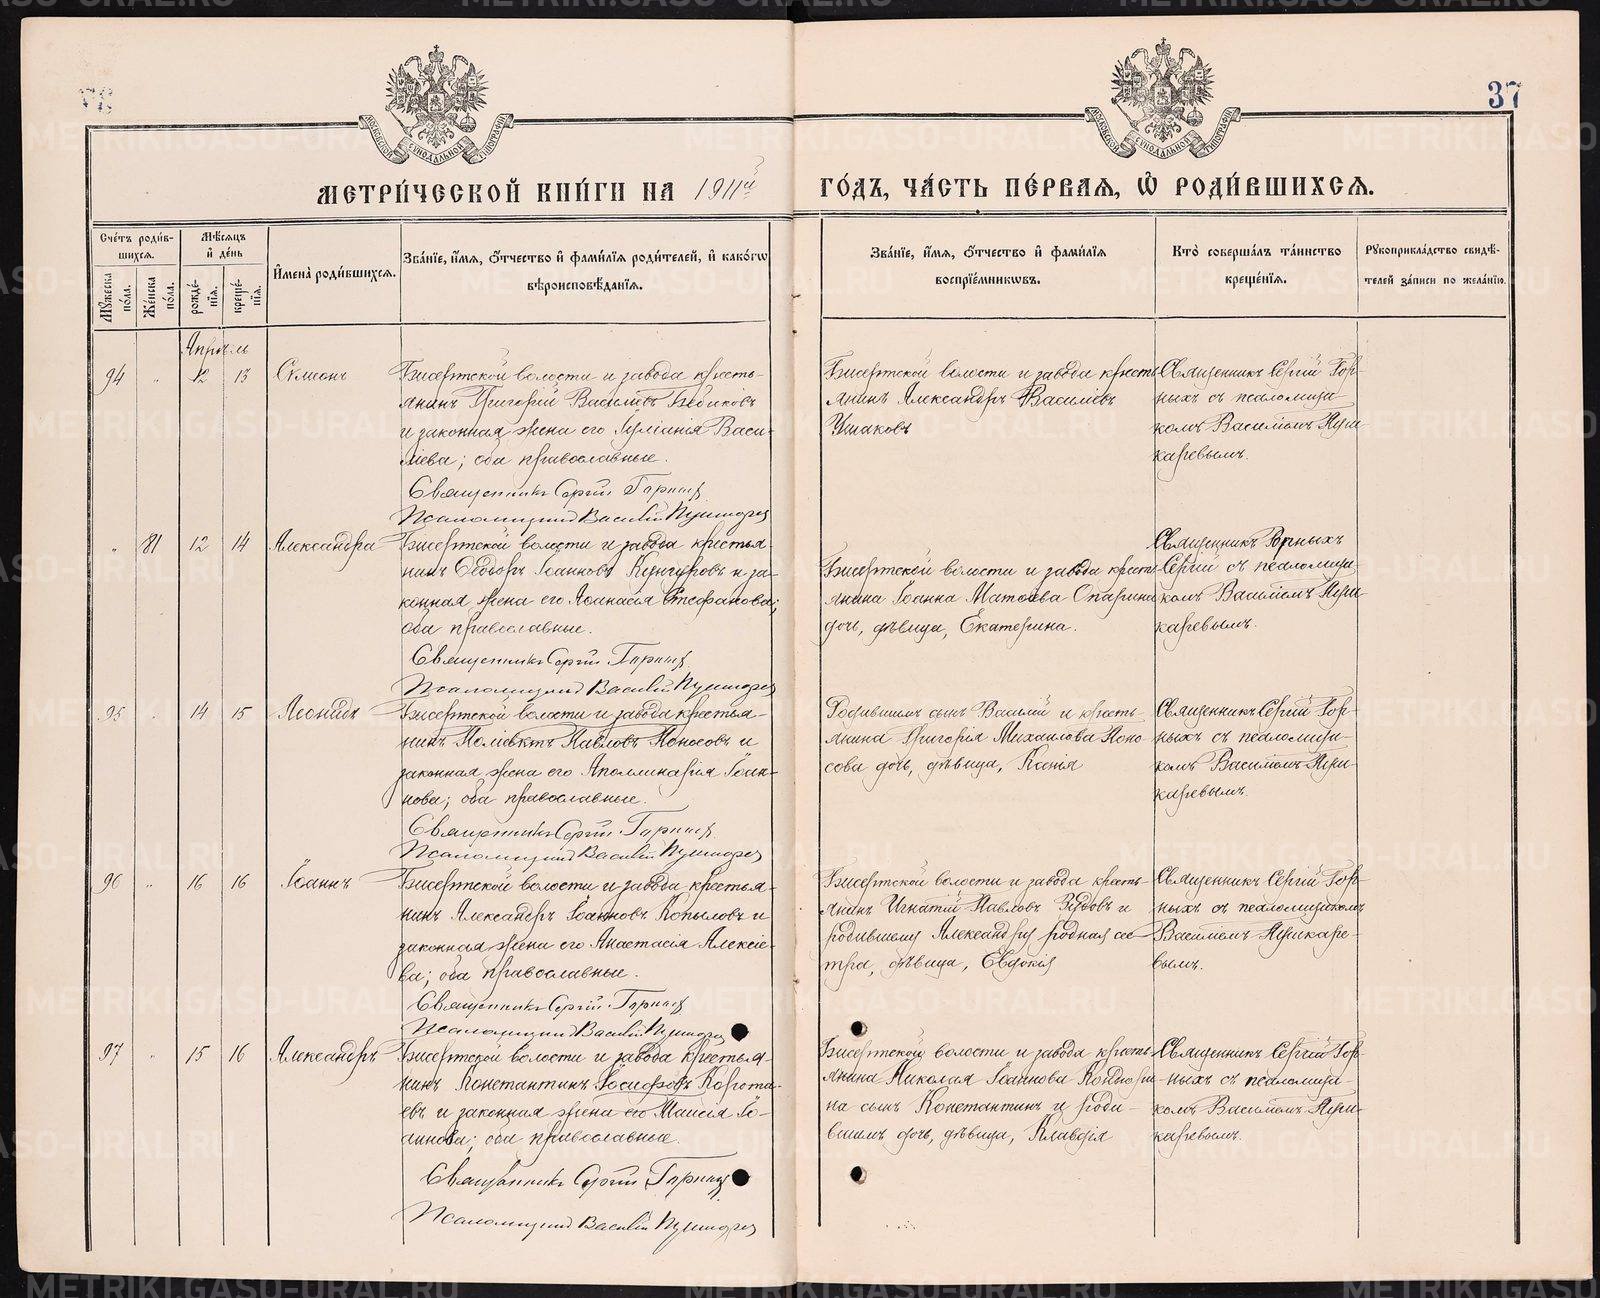 37
МОСКОВСКОЙ СѴНОДАЛЬНОЙ ТИПОГРАФІИ
МОСКОВСКОЙ СѴНОДАЛЬНОЙ ТИПОГРАФІИ
МЕТРИ́ЧЕСКОЙ КНИ́ГИ НА 1911й
ГО́ДЪ, ЧА́СТЬ ПЕ́РВАЯ, Ѡ҆ РОДИ́ВШИХСЯ.
Сче́тъ роди́в-
шихся.
Мꙋ́жеска по́ла.
Же́нска по́ла.
Мѣ́сяцъ и҆ де́нь
рожде́-нїя.
креще́-нїя.
И҆мена̀ роди́вшихся.
Зва́нїе, и҆́мя, ѻ҆́тчество и҆ фами́лїя роди́телей, и҆ како́гѡ
вѣроисповѣ́данїя.
Зва́нїе, и҆́мя, ѻ҆́тчество и҆ фами́лїя
воспрїе́мникѡвъ.
Кто̀ соверша́лъ та́инство
креще́нїя.
Рꙋкоприкла́дство свидѣ́-
телей за́писи по жела́нїю.
Апрѣль
94 " 12 13 Симеонъ
Бисертской волости и завода кресть-
янинъ Григорій Василіевъ
и законная жена его Іуліанія Васи-
ліева; оба православные.
Священникъ Сергій Горныхъ
Псаломщикъ Василій
Бисертской волости и завода кресть-
янинъ Александръ Василіевъ
Ушаковъ
Священникъ Сергій Гор-
ныхъ съ псаломщи-
комъ Василіемъ Пуш-
каревымъ.
" 81 12 14 Александра
Бисертской волости и завода крестья-
нинъ Ѳеодоръ Іоанновъ Кунгуровъ и за-
конная жена его Аѳанасія Стефанова;
оба православные.
Священникъ Сергій Горныхъ
Псаломщикъ Василій
Бисертской волости и завода кресть-
янина Іоанна Матѳеева Спарина
дочь, дѣвица, Екатерина.
Священникъ Горныхъ
Сергій съ псаломщи-
комъ Василіемъ Пуш-
каревымъ.
95 " 14 15 Леонидъ
Бисертской волости и завода крестья-
нинъ Поліевктъ Павловъ Поносовъ и
законная жена его Аполлинарія Іоан-
нова; оба православные.
Священникъ Сергій Горныхъ
Псаломщикъ Василій
Родившимъ сынъ Василій и кресть-
янина Григорія Михаилова Поно-
сова дочь, дѣвица, Ксенія
Священникъ Сергій Гор-
ныхъ съ псаломщи-
комъ Василіемъ Пуш-
каревымъ.
96 " 16 16 Іоаннъ
Бисертской волости и завода крестья-
нинъ Александръ Іоанновъ Копыловъ и
законная жена его Анастасія Алексіе-
ва; оба православные.
Священникъ Сергій Горныхъ
Псаломщикъ Василій
Бисертской волости и завода кресть-
янинъ Игнатій Павловъ и
родившему Александру родная сес-
тра, дѣвица, Евдокія
Священникъ Сергій Гор-
ныхъ съ псаломщикомъ
Василіемъ Пушкаре-
вымъ.
97 " 15 16 Александръ
Бисертской волости и завода крестья-
нинъ Константинъ Іосифовъ Корота-
евъ и законная жена его Таисія Іо-
аннова; оба православные.
Священникъ Сергій Горныхъ
Псаломщикъ Василій
Бисертской волости и завода кресть-
янина Николая Іоаннова
на сынъ Константинъ и роди-
вшимъ дочь, дѣвица, Клавдія
Священникъ Сергій Гор-
ныхъ съ псаломщи-
комъ Василіемъ Пуш-
каревымъ.
METRIKI.GASO-URAL.RU